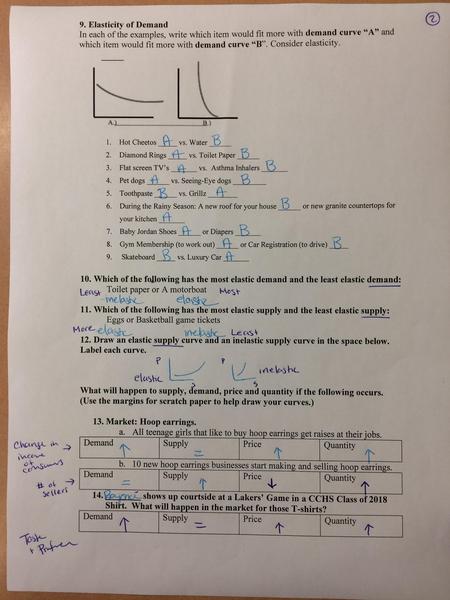 2
9. Elasticity of Demand
In each of the examples, write which item would fit more with demand curve "A" and
which item would fit more with demand curve "B". Consider elasticity.
A.) B.)
1. Hot Cheetos A vs. Water B
2. Diamond Rings A vs. Toilet Paper B
3. Flat screen TV's A vs. Asthma Inhalers B
4. Pet dogs A vs. Seeing-Eye dogs B
5. Toothpaste B vs. Grillz A
6. During the Rainy Season: A new roof for your house B or new granite countertops for
your kitchen A
7. Baby Jordan Shoes A or Diapers B
8. Gym Membership (to work out) A or Car Registration (to drive) B
9. Skateboard B vs. Luxury Car A
10. Which of the following has the most elastic demand and the least elastic demand:
Least Toilet paper or A motorboat Most
inelastic elastic
11. Which of the following has the most elastic supply and the least elastic supply:
Eggs or Basketball game tickets
More elastic inelastic Least
12. Draw an elastic supply curve and an inelastic supply curve in the space below.
Label each curve.
P P
elastic inelastic
S
What will happen to supply, demand, price and quantity if the following occurs.
(Use the margins for scratch paper to help draw your curves.)
13. Market: Hoop earrings.
a. All teenage girls that like to buy hoop earrings get raises at their jobs.
Change in income of consumers → Demand ↑ Supply = Price ↑ Quantity ↑
b. 10 new hoop earrings businesses start making and selling hoop earrings.
# of sellers → Demand = Supply ↑ Price ↓ Quantity ↑
14. Beyonce shows up courtside at a Lakers' Game in a CCHS Class of 2018
Shirt. What will happen in the market for those T-shirts?
Demand ↑ Supply = Price ↑ Quantity ↑
Taste